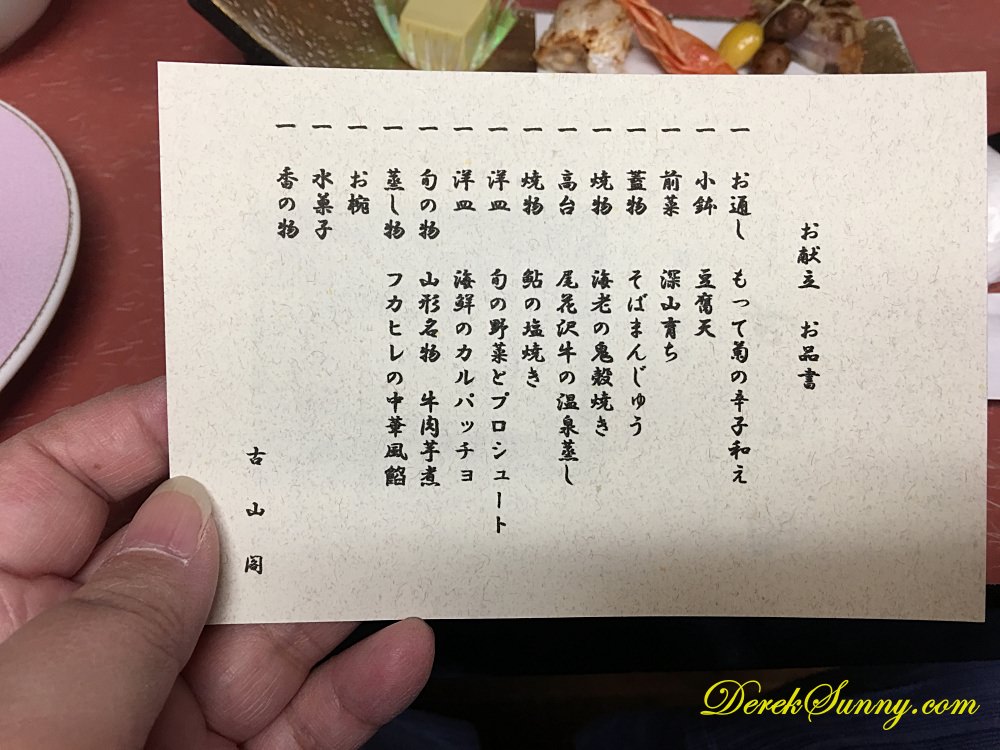 お献立 お品書
一 お通し もって菊の辛子和え
一 小鉢 豆腐天
一 前菜 深山育ち
一 蓋物 そばまんじゅう
一 焼物 海老の鬼殻焼き
一 高台 尾花沢牛の温泉蒸し
一 焼物 鮎の塩焼き
一 洋皿 旬の野菜とプロシュート
一 洋皿 海鮮のカルパッチョ
一 旬の物 山形名物 牛肉芋煮
一 蒸し物 フカヒレの中華風餡
一 お椀
一 水菓子
一 香の物
古山閣
DerekSunny.com